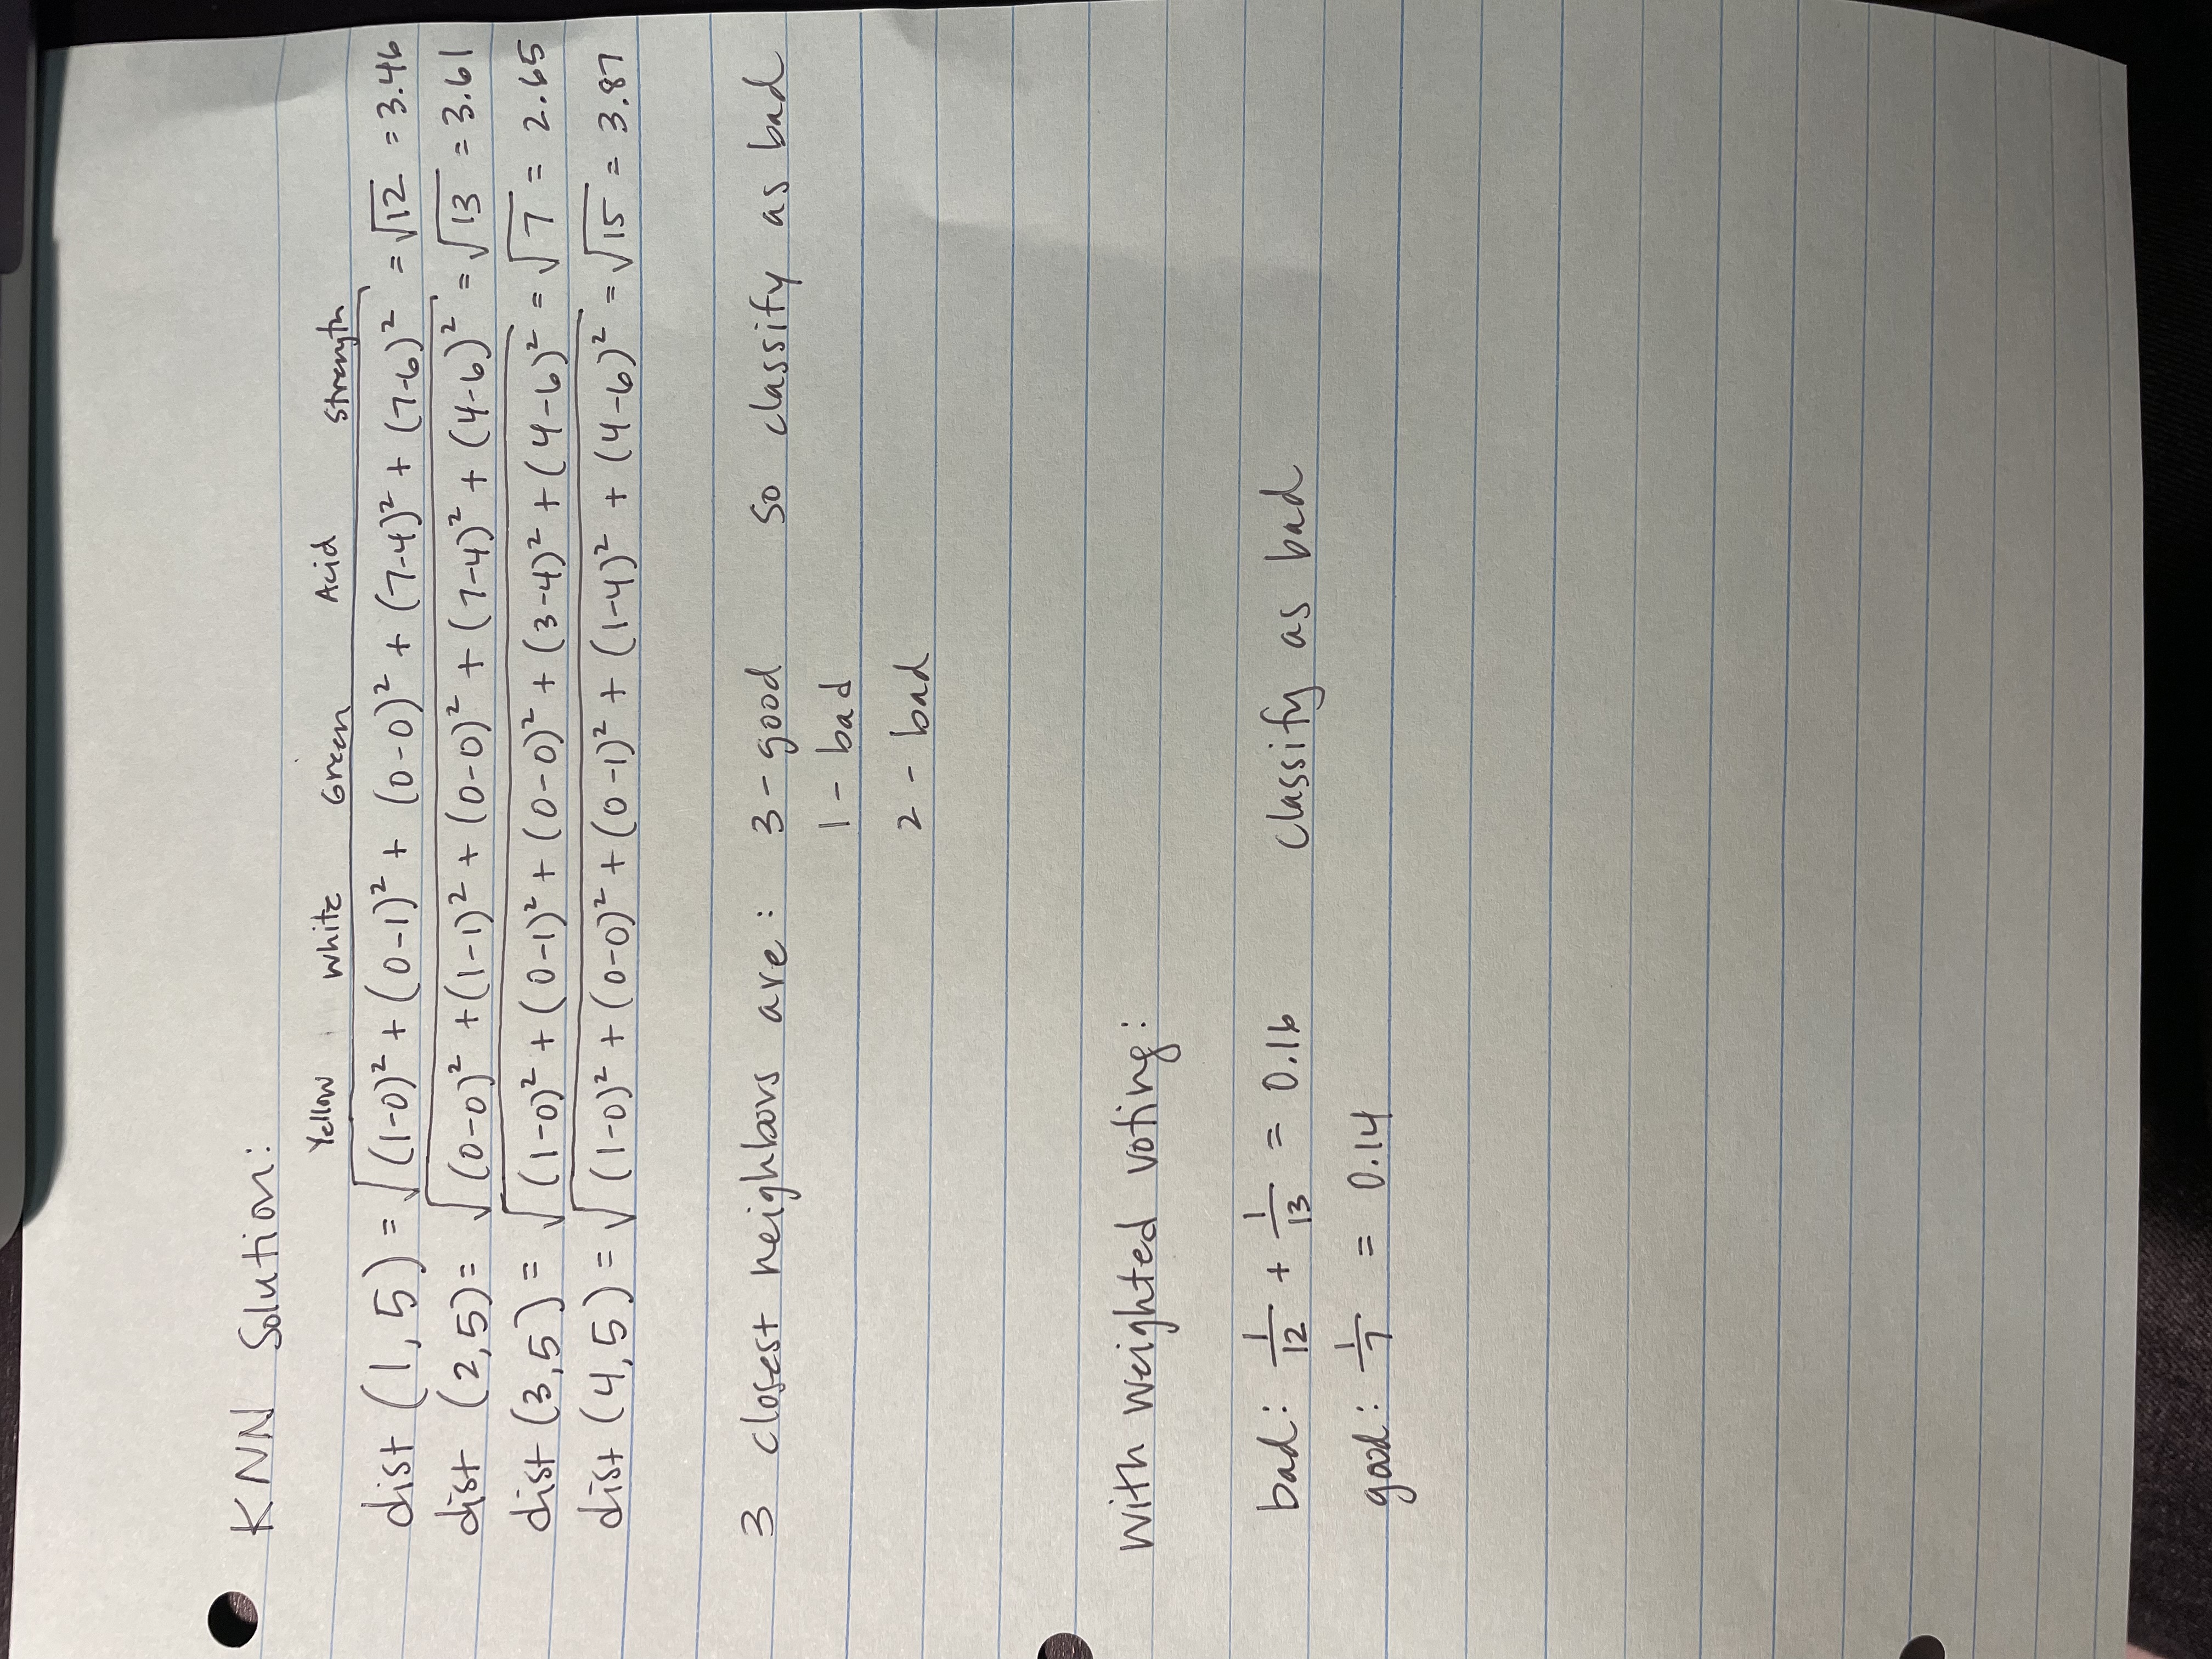 KNN Solution:
Yellow White Green Acid Strength
dist (1,5) = √(1-0)² + (0-1)² + (0-0)² + (7-4)² + (7-6)² = √12 = 3.46
dist (2,5) = √(0-0)² + (1-1)² + (0-0)² + (7-4)² + (4-6)² = √13 = 3.61
dist (3,5) = √(1-0)² + (0-1)² + (0-0)² + (3-4)² + (4-6)² = √7 = 2.65
dist (4,5) = √(1-0)² + (0-0)² + (0-1)² + (1-4)² + (4-6)² = √15 = 3.87
3 closest neighbors are: 3 - good So classify as bad
1 - bad
2 - bad
With weighted voting:
bad: 1/12 + 1/13 = 0.16 classify as bad
good: 1/7 = 0.14